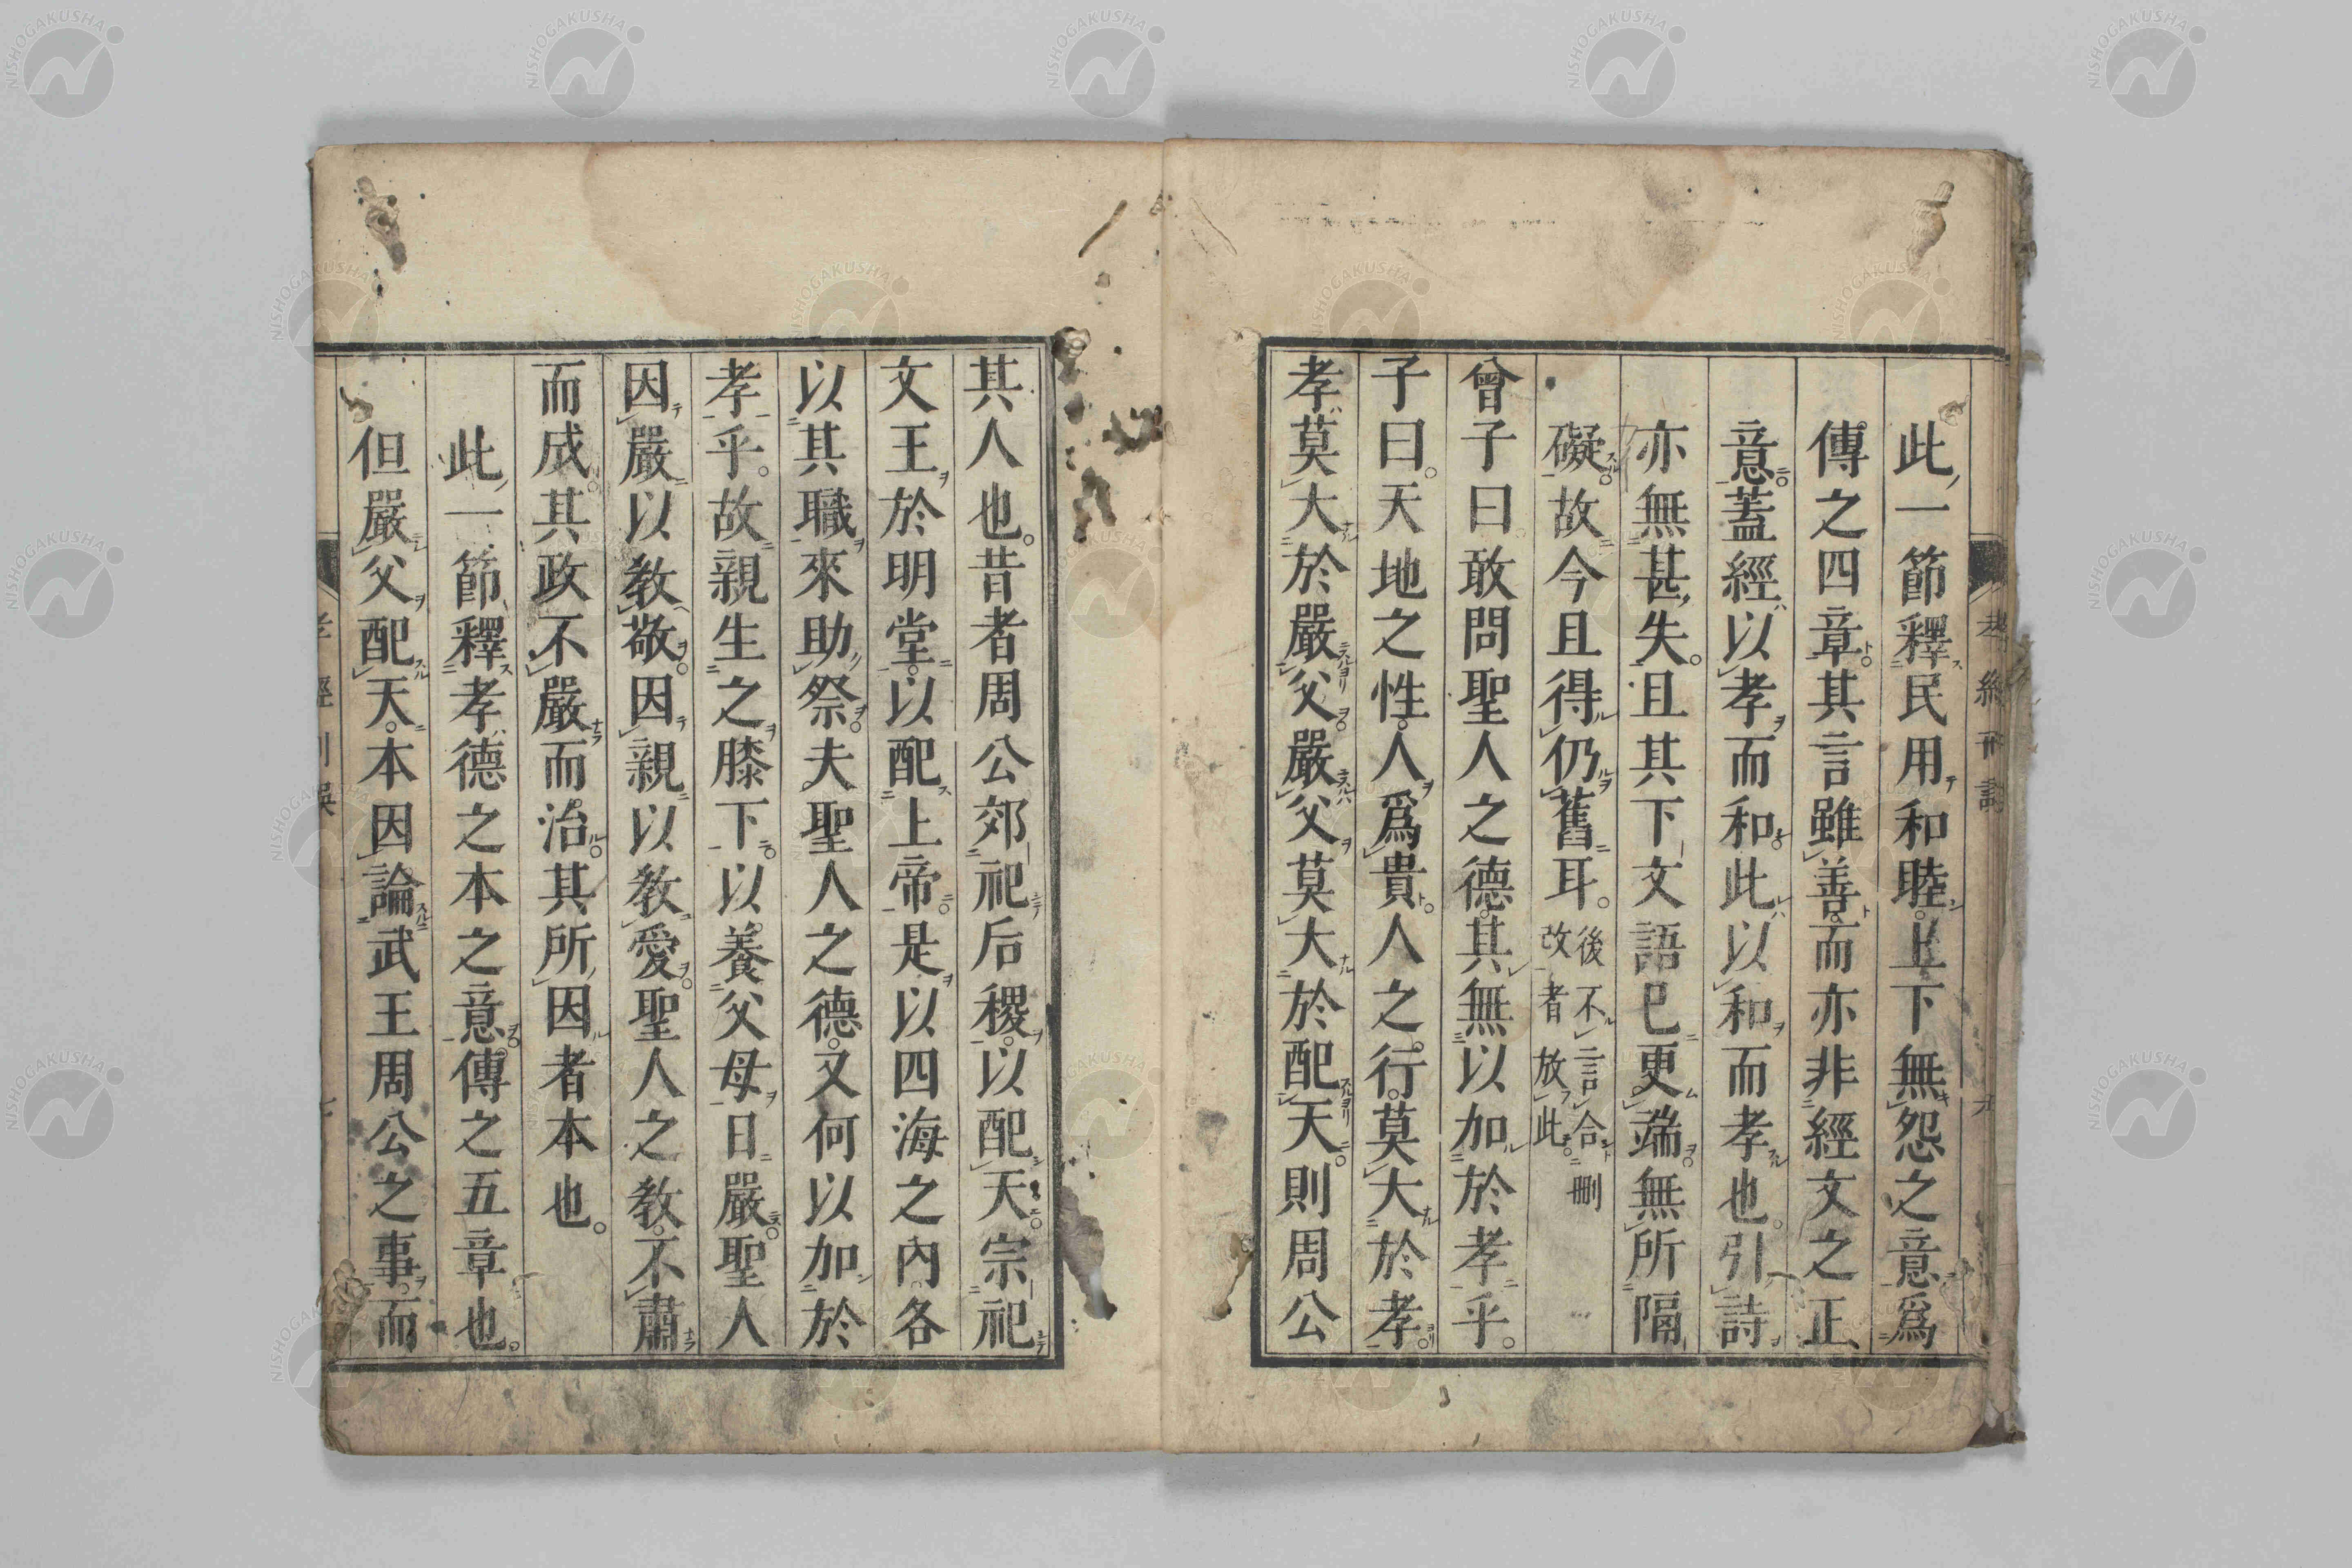 此一節釋民用和睦上下無怨之意爲
傳之四章其言雖善而亦非經文之正
意蓋經以孝而和此以和而孝也引詩
亦無甚失且其下文語已更端無所隔
礙故今且得仍舊耳後不言合刪改者放此
曾子曰敢問聖人之德其無以加於孝乎
子曰天地之性人爲貴人之行莫大於孝
孝莫大於嚴父嚴父莫大於配天則周公
其人也昔者周公郊祀后稷以配天宗祀
文王於明堂以配上帝是以四海之內各
以其職來助祭夫聖人之德又何以加於
孝乎故親生之膝下以養父母日嚴聖人
因嚴以教敬因親以教愛聖人之教不肅
而成其政不嚴而治其所因者本也
此一節釋孝德之本之意傳之五章也
但嚴父配天本因論武王周公之事而
NISHOGAKUSHA